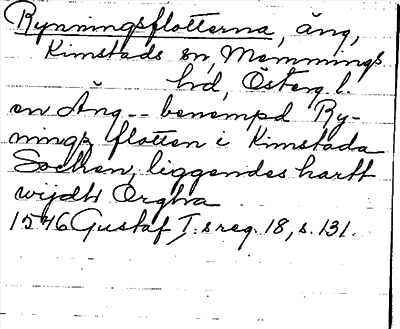 Rynningsflotterna, äng,
Kimstads sn, Memmings
hd, Österg. l.
en Äng -- benempd Ry-
nings flotten i Kimstada
Sochen, liggendes hartt
wijdt Orgha
1546 Gustaf I.s reg. 18, s. 131.